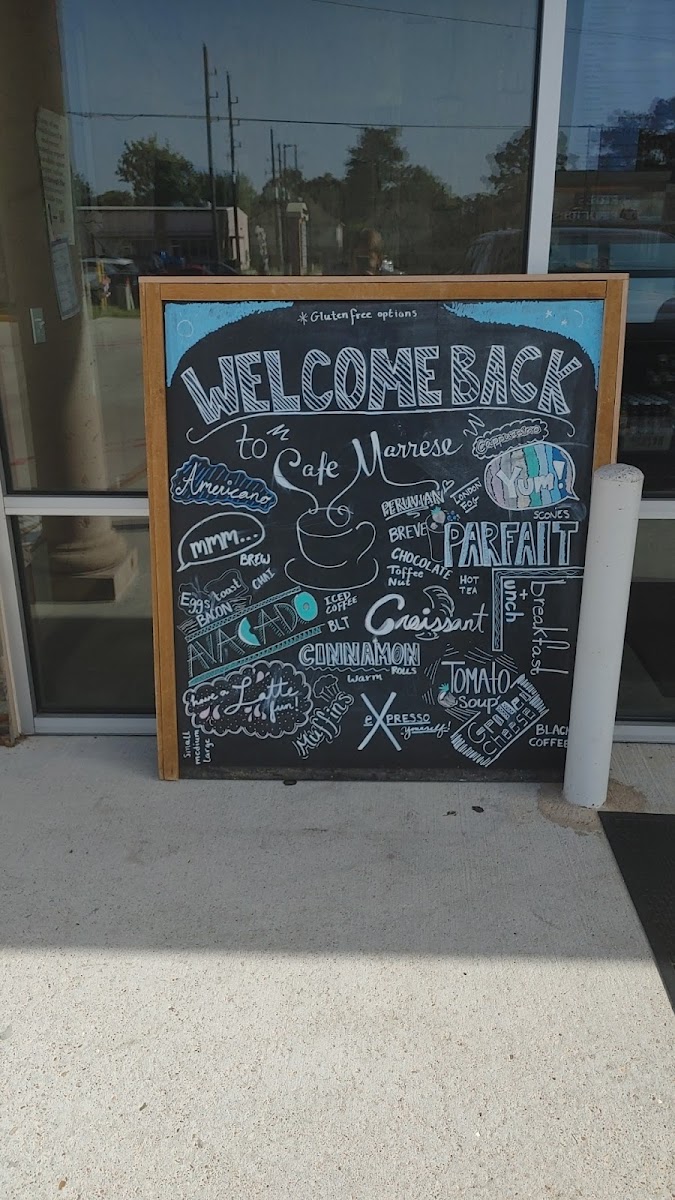 *Gluten free options
WELCOME BACK
to
Cafe Marrese
Cappuccino
Americano
Yum!
PERUVIAN
LONDON
FOG
SCONES
mmm...
BREW
BREVE
PARFAIT
CHOCOLATE
Toffee
Nut
HOT
TEA
CHAI
Eggs toast
BACON
AVACADO
ICED
COFFEE
BLT
Croissant
breakfast
+
unch
CINNAMON
ROLLS
warm
TOMATO
SOUP
GRILLED
CHEESE
have a Latte
fun!
Muffins
eXPRESSO
Yourself!
BLACK
COFFEE
Small
medium
Large